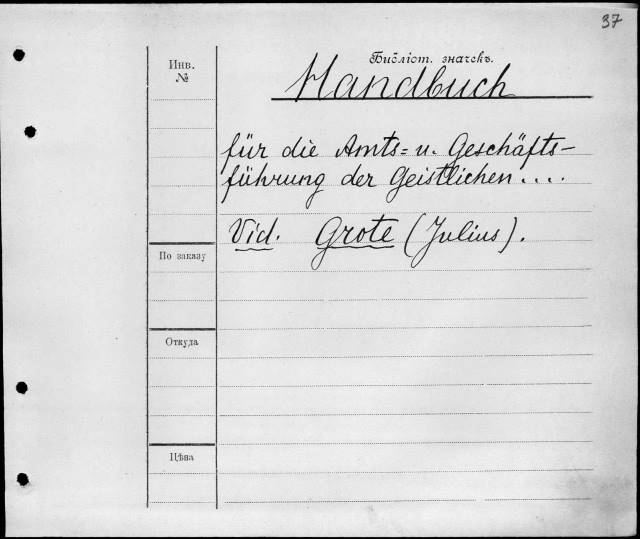 37
Библіот. значекъ.
Инв.
№
Handbuch
für die Amts= u. Geschäfts-
führung der Geistlichen....
Vid. Grote (Julius).
По заказу
Откуда
Цѣна